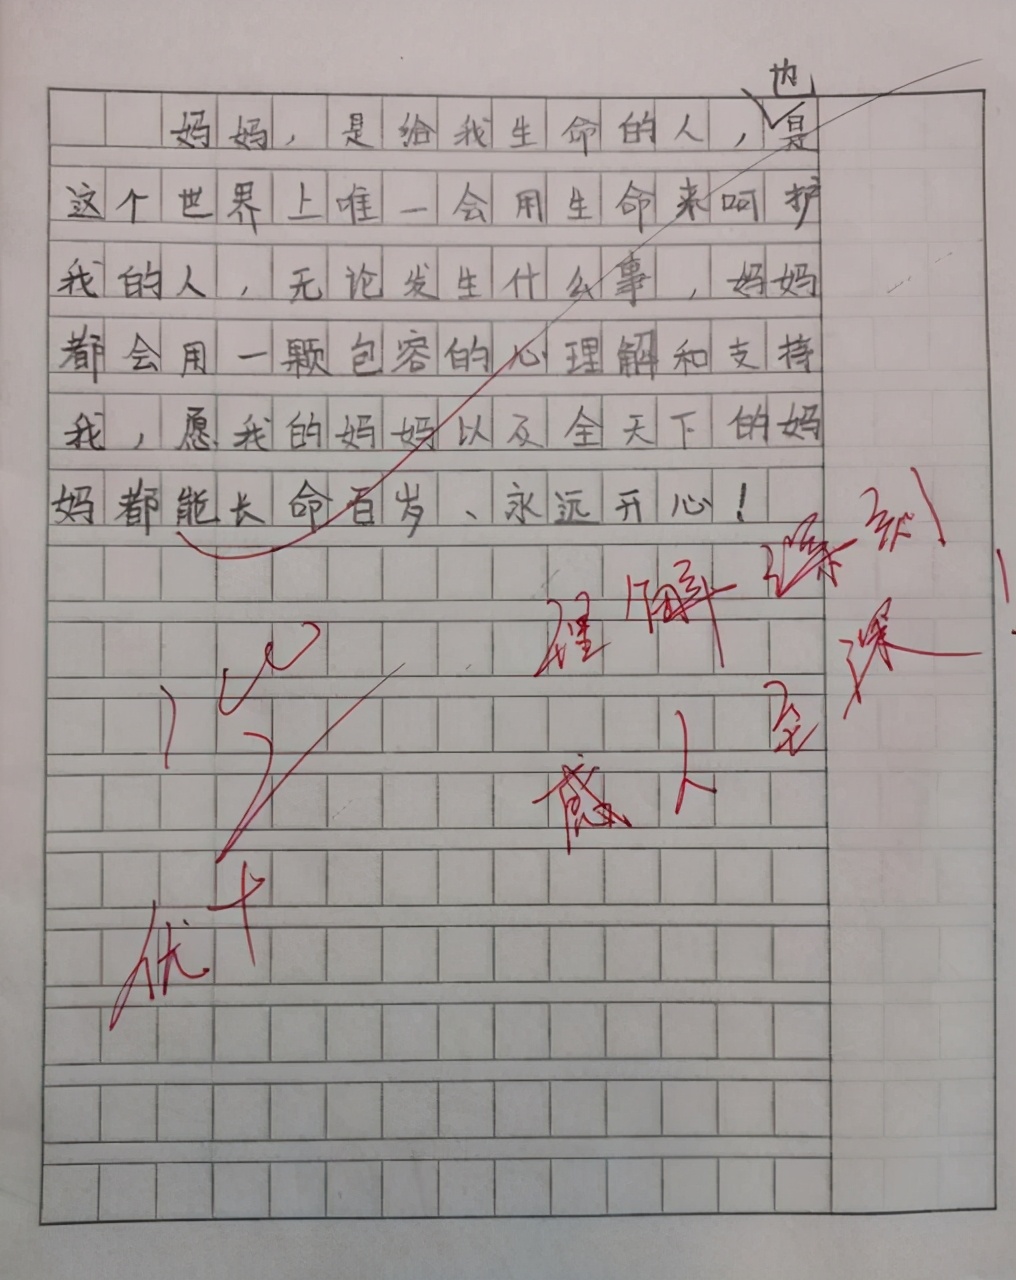 妈妈，是给我生命的人，也是
这个世界上唯一会用生命来呵护
我的人，无论发生什么事，妈妈
都会用一颗包容的心理解和支持
我，愿我的妈妈以及全天下的妈
妈都能长命百岁、永远开心！
理解深刻
感人至深
优+